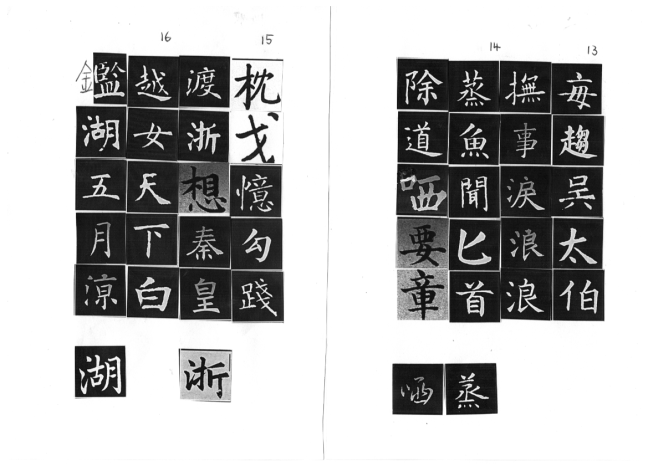 13
每趨吳太伯
撫事淚浪浪
14
蒸魚聞匕首
除道哂要章
蒸
哂
15
枕戈憶勾踐
渡浙想秦皇
浙
16
越女天下白
鑑湖五月涼
湖